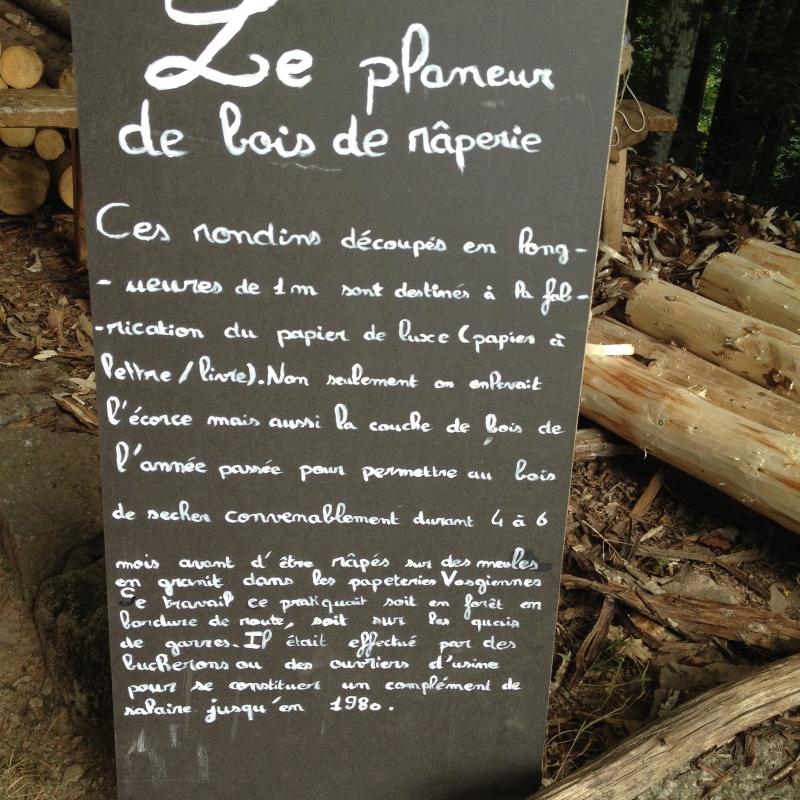 Le planeur
de bois de râperie
Ces rondins découpés en long-
- ueures de 1m sont destinés à la fab-
-rication du papier de luxe (papier à
lettre / livre). Non seulement on enlevait
l'écorce mais aussi la couche de bois de
l'année passée pour permettre au bois
de secher convenablement durant 4 à 6
mois avant d'être râpés sur des meules
en granit dans les papeteries Vosgiennes
Se travail ce pratiquait soit en forêt en
bordure de route, soit sur les quais
de garres. Il était effectué par des
bucherons ou des ouvriers d'usine
pour se constituer un complément de
salaire jusqu'en 1980.